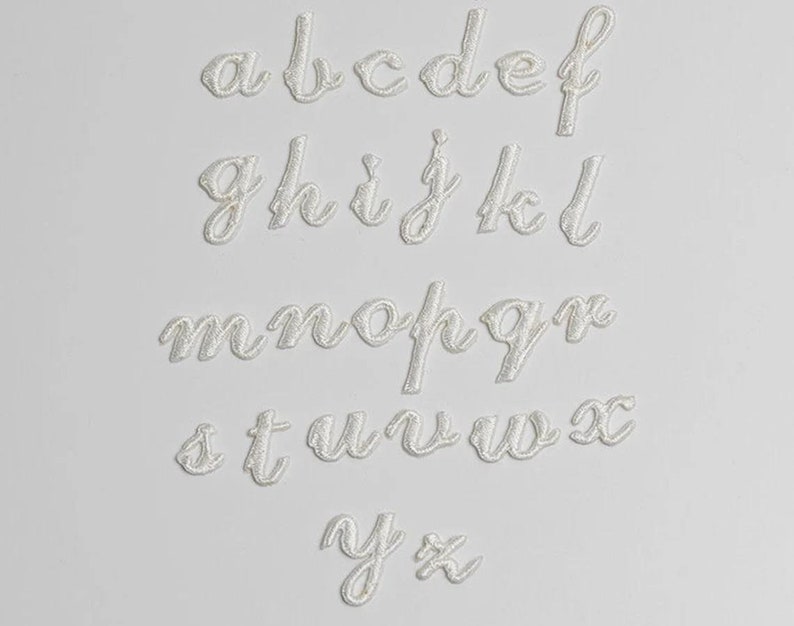 abcdef
ghijkl
mnopqr
stuvwx
yz